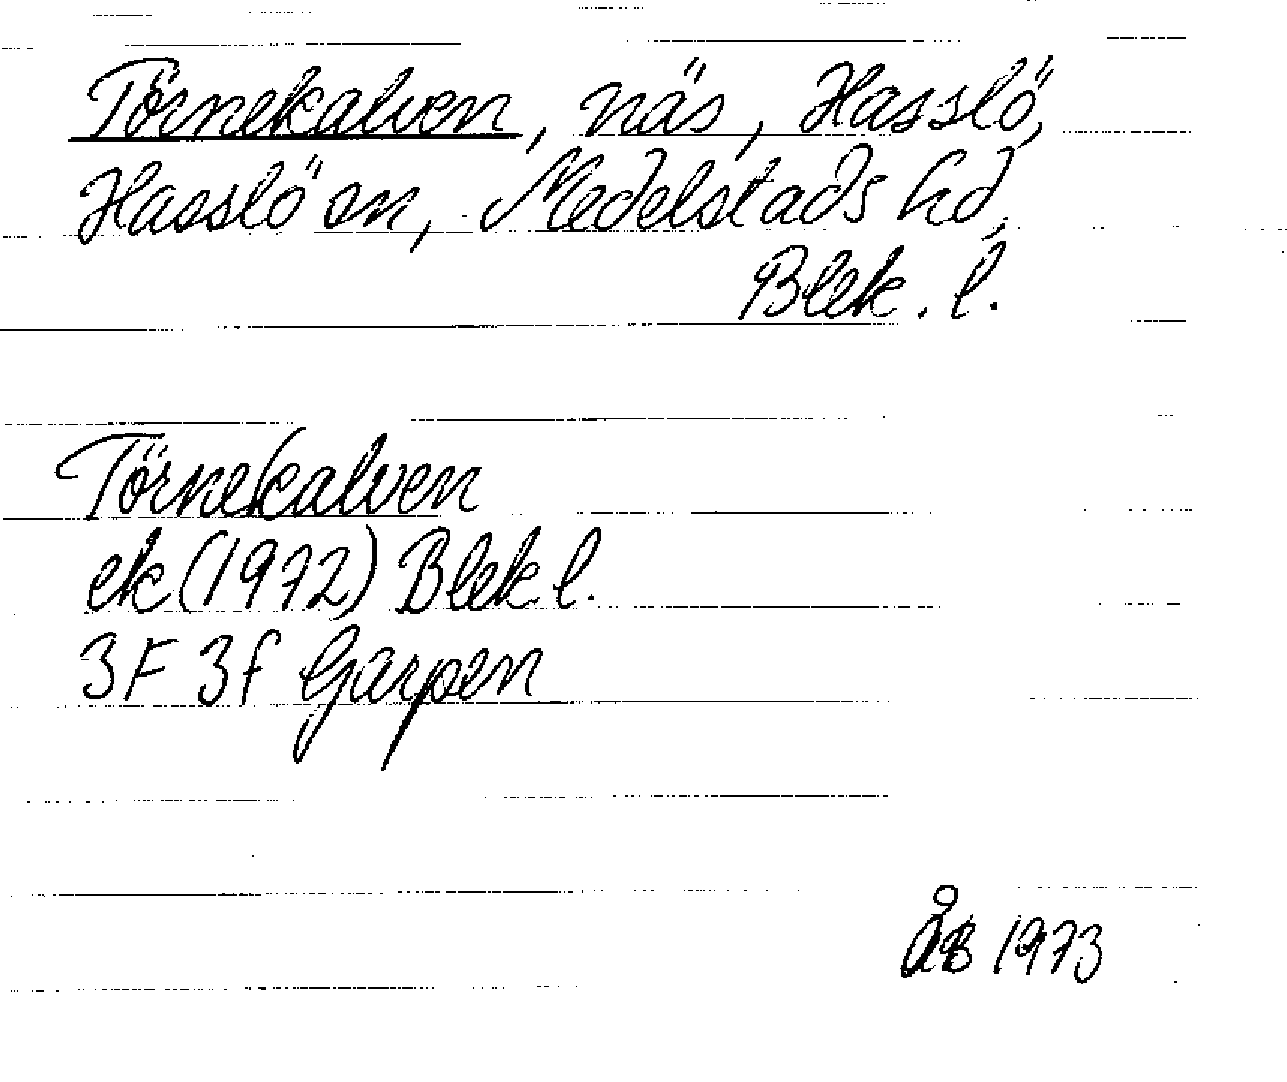 Törnekalven, näs, Hasslö,
Hasslö sn, Medelstads hd,
Blek. l.
Törnekalven
ek (1972) Blek l.
3F 3f Garpen
ÅB 1973